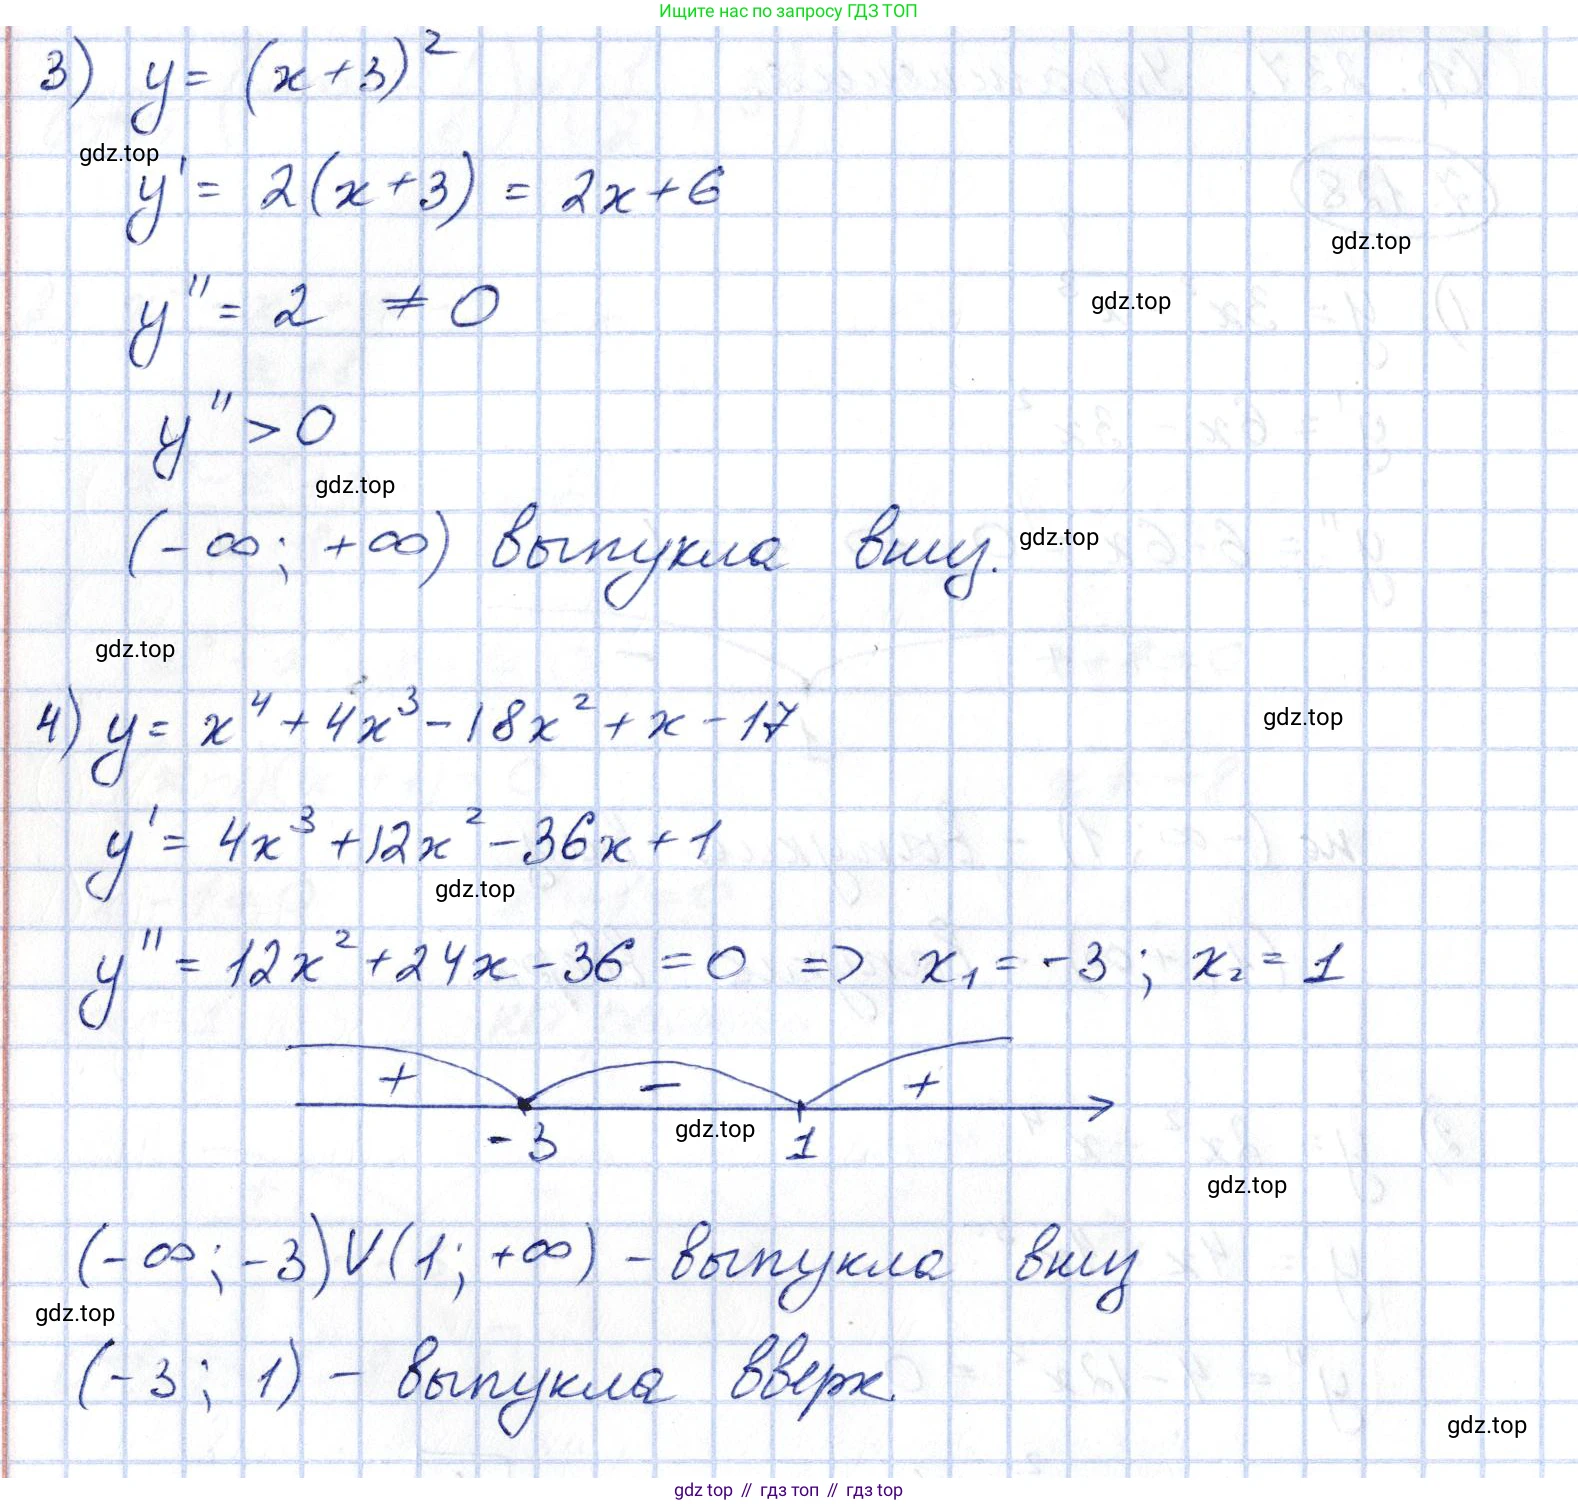 Ищите нас по запросу ГДЗ ТОП
3) y = (x+3)²
gdz.top
y' = 2(x+3) = 2x+6
gdz.top
y'' = 2 ≠ 0
gdz.top
y'' > 0
gdz.top
(-∞; +∞) выпукла вниз.
gdz.top
gdz.top
4) y = x⁴ + 4x³ - 18x² + x - 17
gdz.top
y' = 4x³ + 12x² - 36x + 1
gdz.top
y'' = 12x² + 24x - 36 = 0 => x₁ = -3; x₂ = 1
+ - +
-3 1
gdz.top
gdz.top
(-∞; -3) V (1; +∞) - выпукла вниз
gdz.top
(-3; 1) - выпукла вверх.
gdz.top
gdz top // гдз топ // гдз top